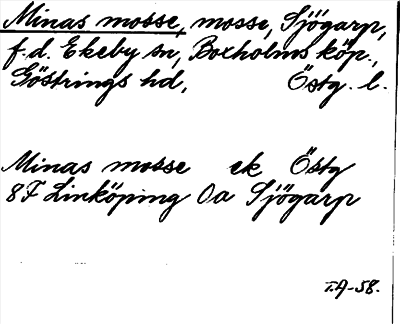 Minas mosse, mosse, Sjögarp,
f.d. Ekeby sn, Boxholms köp.,
Göstrings hd, Östg. l.
Minas mosse ek Östg
8F Linköping 0a Sjögarp
T.A-58.